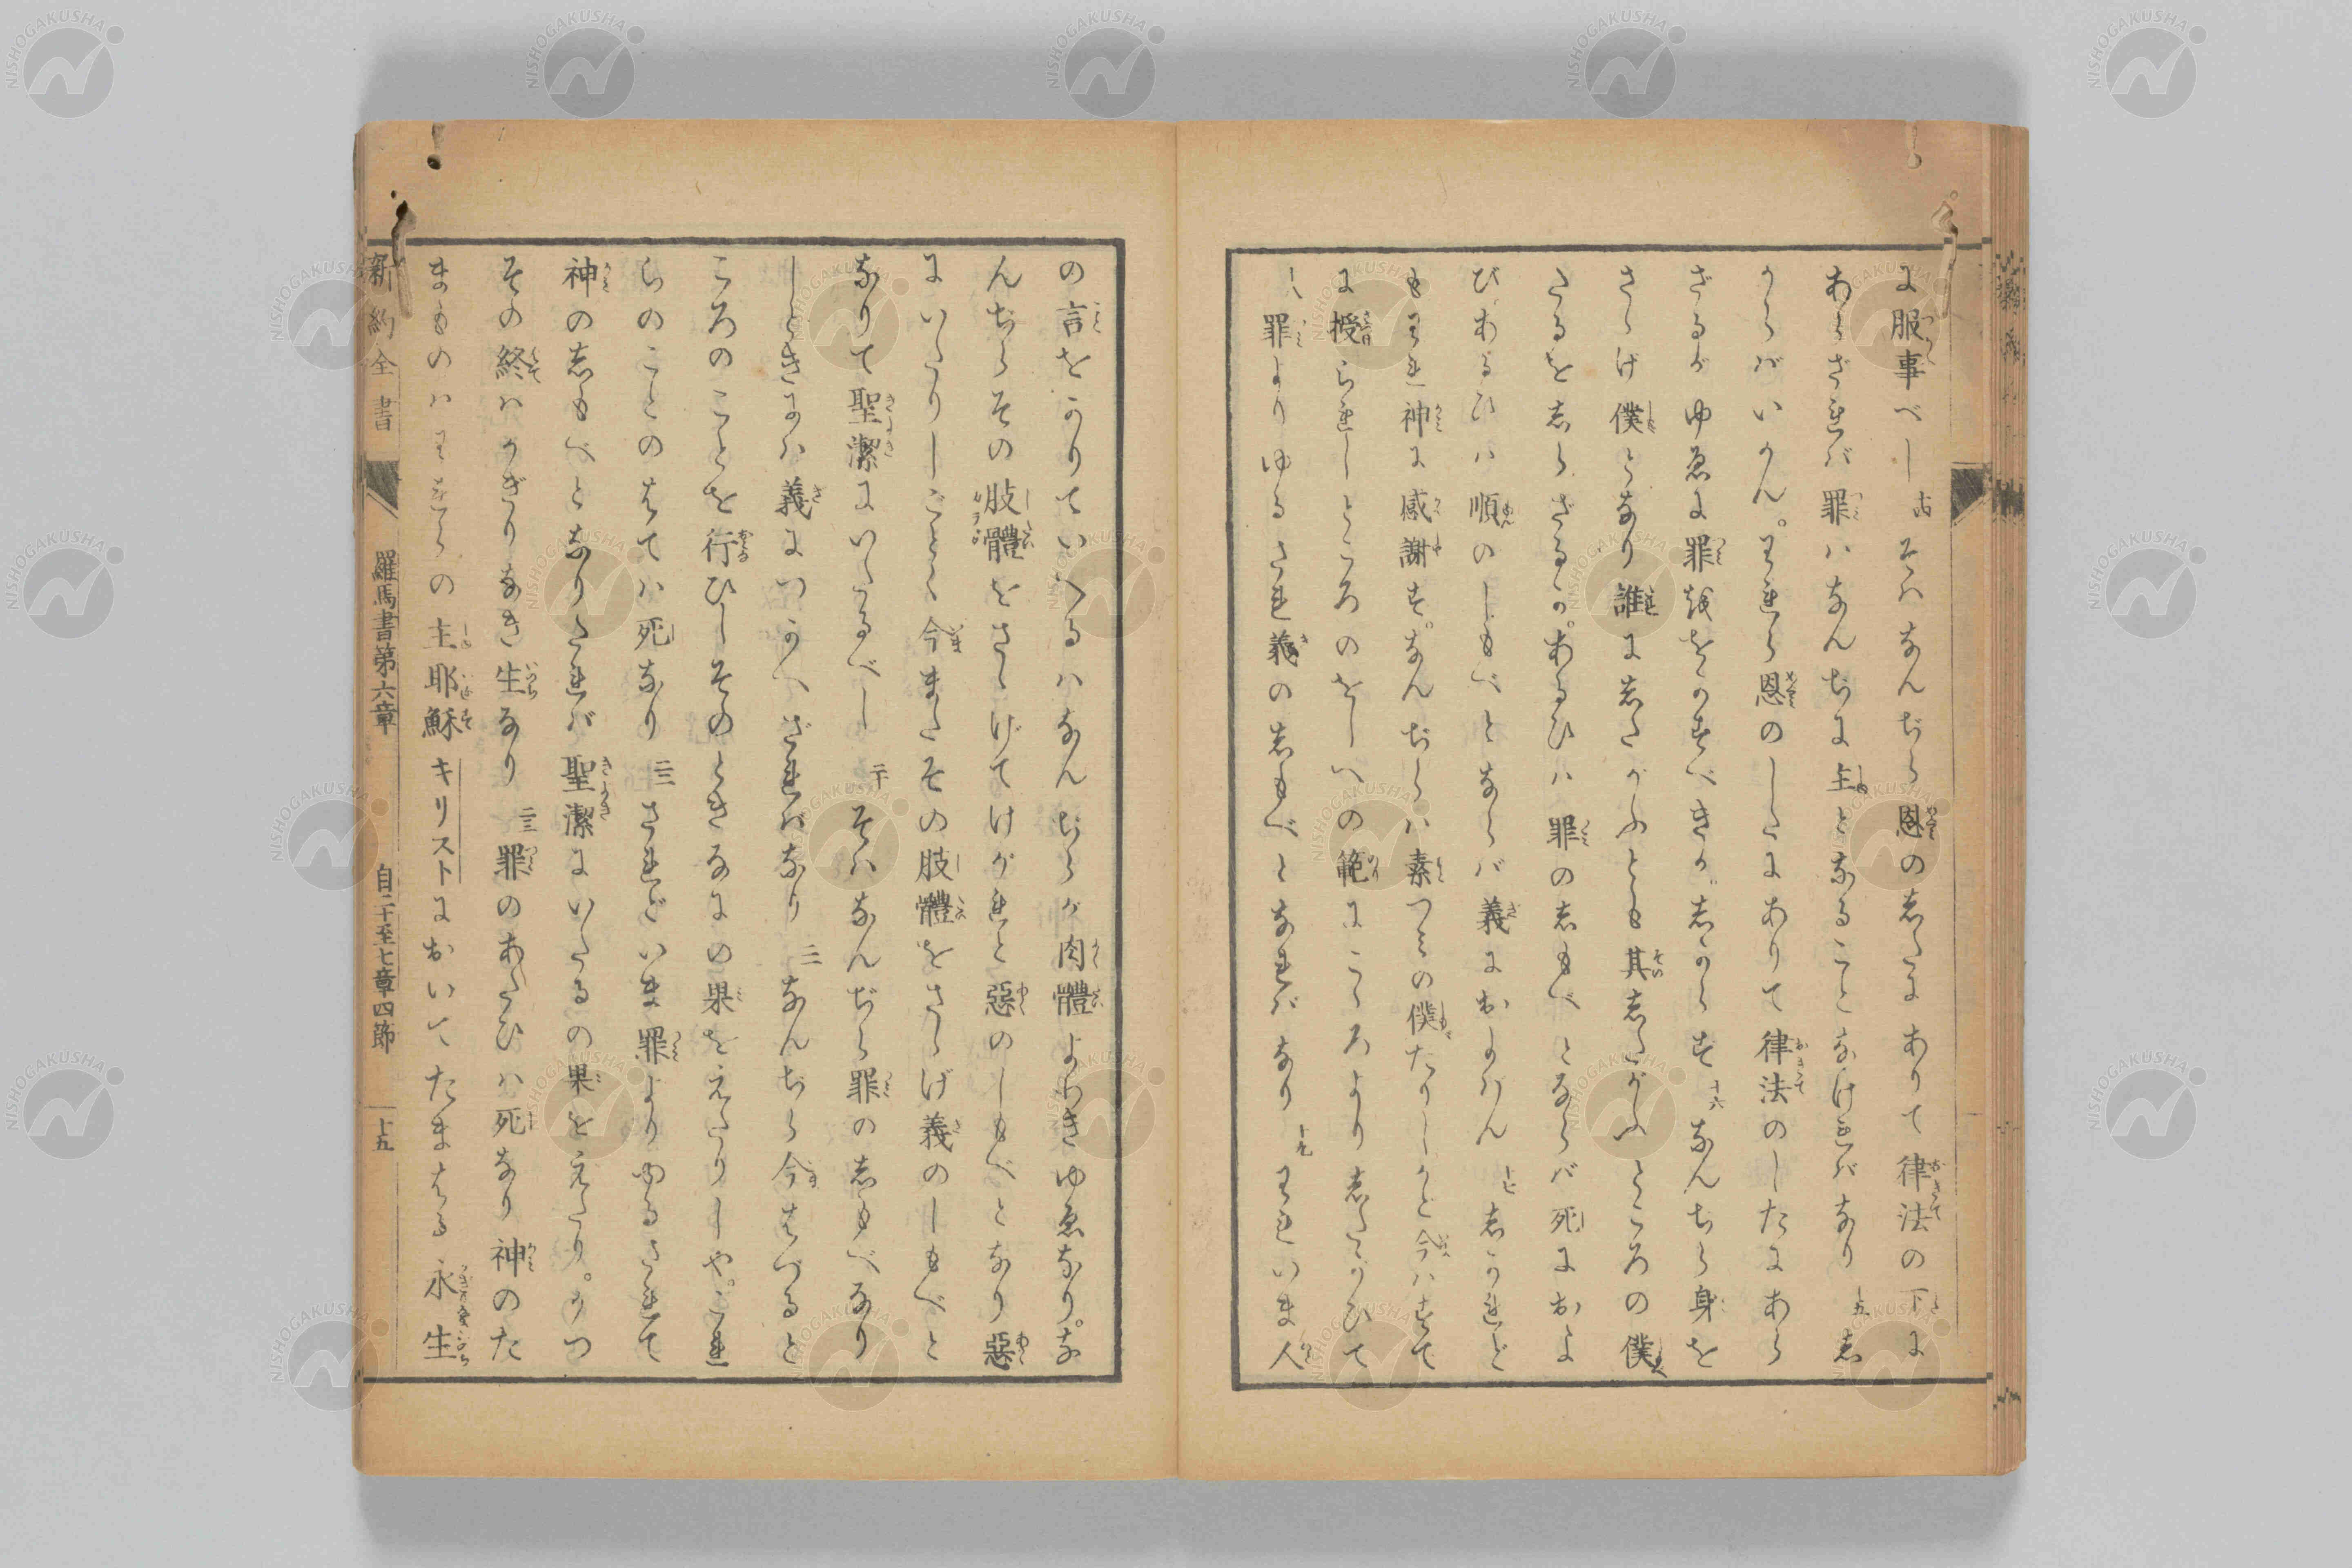 に服事べし 十四 そハなんぢら恩の志たにありて律法の下に
あらざれバ罪ハなんぢに主となることなけれバなり 十五 志
からバいかん。われら恩のしたにありて律法のしたにあら
ざるがゆゑに罪ををかすべきか志からず 十六 なんぢら身を
さゝげ僕となり誰に志たがふとも其志たがふところの僕
たるを志らざるか。あるひハ罪の志もべとならバ死におよ
びあるひハ順のしもべとならバ義におよバん 十七 志かれど
もわれ神に感謝す。なんぢらハ素つミの僕たりしかど今ハすで
に授られしところのをしへの範にこゝろより志たがひて
十八 罪よりゆるされ義の志もべとなれバなり 十九 われいま人
の言をかりていへるハなんぢらが肉體よわきゆゑなり。な
んぢらその肢體をさゝげてけがれと惡のしもべとなり惡
にいたりしごとく今またその肢體をさゝげ義のしもべと
なりて聖潔にいたるべし 二十 そハなんぢら罪の志もべなり
しときにハ義につかへざれバなり 二一 なんぢら今はづると
ころのことを行ひしそのときなにの果をえたりしや。これ
らのことのはてハ死なり 二二 されどいま罪よりゆるされて
神の志もべとなりたれバ聖潔にいたるの果をえたり。かつ
その終ハかぎりなき生なり 二三 罪のあたひハ死なり神のた
まものハわれらの主耶穌キリストにおいてたまはる永生
新約全書 羅馬書第六章 自二十至七章四節 十五